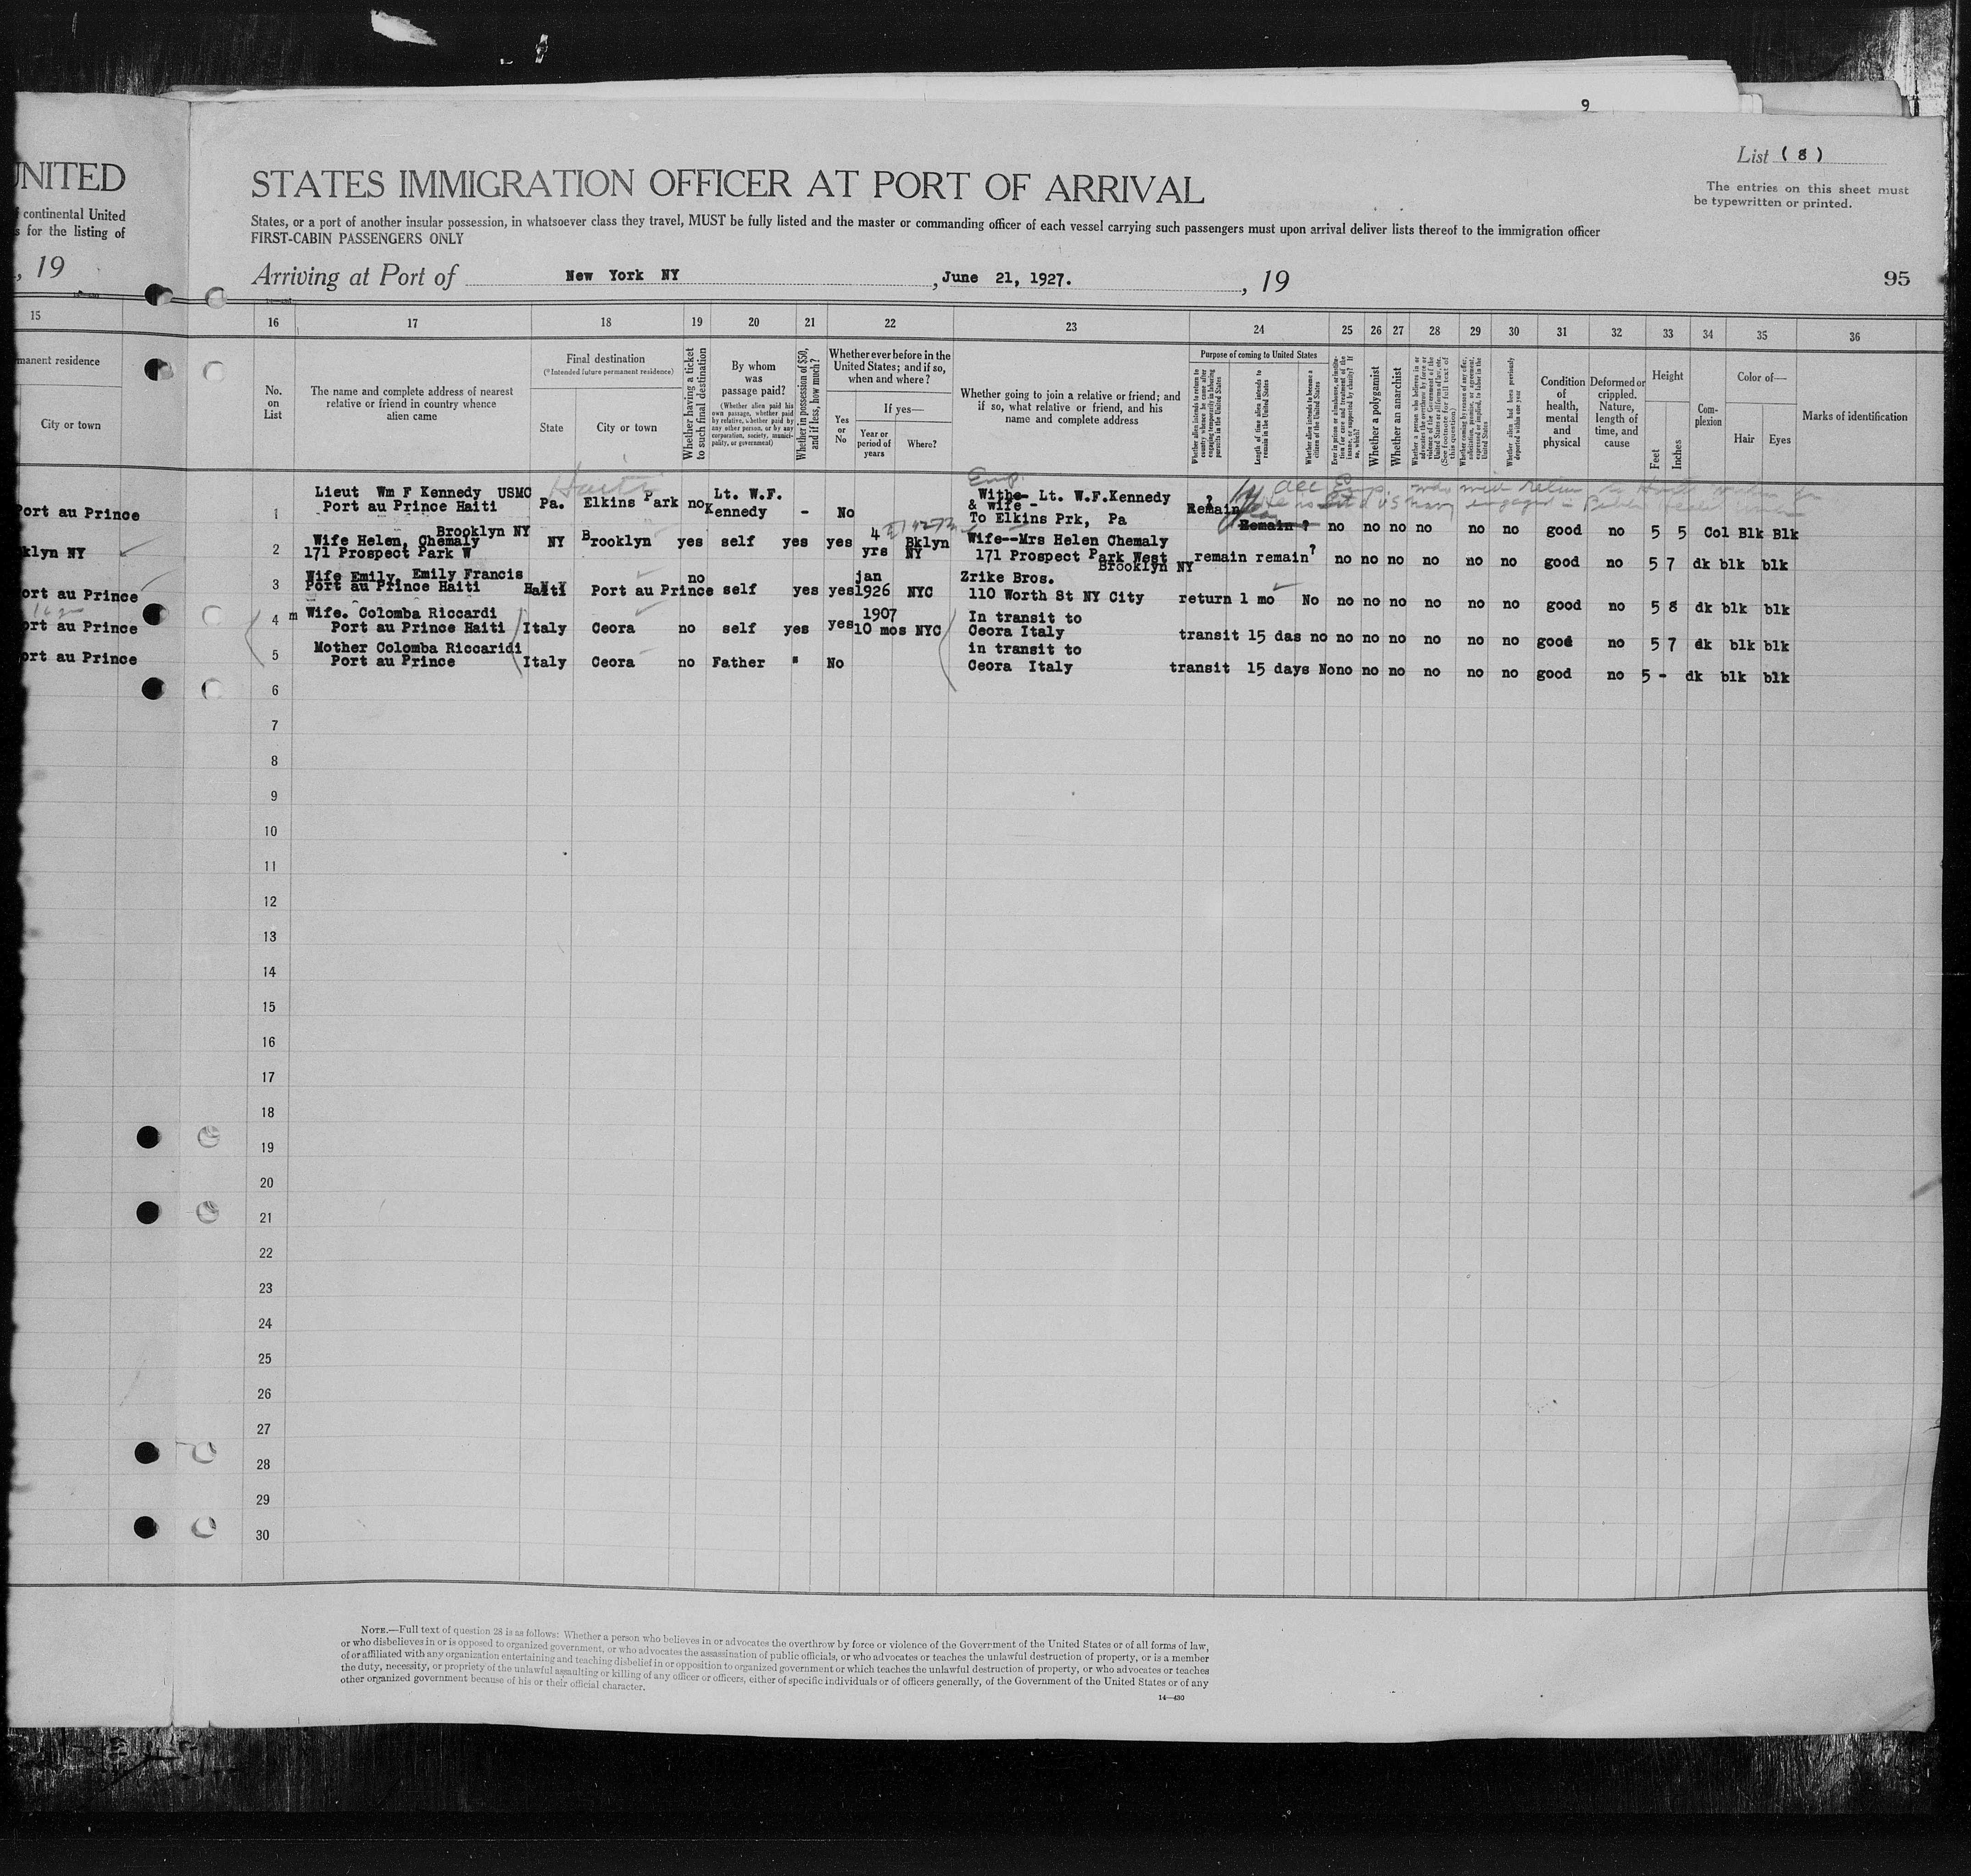 9
UNITED
continental United
s for the listing of
, 19
List ( 8 )
The entries on this sheet must
be typewritten or printed.
STATES IMMIGRATION OFFICER AT PORT OF ARRIVAL
States, or a port of another insular possession, in whatsoever class they travel, MUST be fully listed and the master or commanding officer of each vessel carrying such passengers must upon arrival deliver lists thereof to the immigration officer
FIRST-CABIN PASSENGERS ONLY
Arriving at Port of New York NY , June 21, 1927. , 19
95
15 16 17 18 19 20 21 22 23 24 25 26 27 28 29 30 31 32 33 34 35 36
manent residence
City or town
No. on List
The name and complete address of nearest relative or friend in country whence alien came
Final destination
(*Intended future permanent residence)
State
City or town
Whether having a ticket to such final destination
By whom was passage paid?
(Whether alien paid his own passage, whether paid by relative, whether paid by any other person, or by any corporation, society, municipality, or government)
Whether in possession of $50, and if less, how much?
Whether ever before in the United States; and if so, when and where?
Yes or No
If yes—
Year or period of years
Where?
Whether going to join a relative or friend; and if so, what relative or friend, and his name and complete address
Purpose of coming to United States
Whether alien intends to return to country whence he came after engaging temporarily in laboring pursuits in the United States
Length of time alien intends to remain in the United States
Whether alien intends to become a citizen of the United States
Ever in prison or almshouse, or institution for care and treatment of the insane, or supported by charity? If so, which?
Whether a polygamist
Whether an anarchist
Whether a person who believes in or advocates the overthrow by force or violence of the Government of the United States or all forms of law, etc. (See footnote for full text of this question)
Whether coming by reason of any offer, solicitation, promise, or agreement, expressed or implied, to labor in the United States
Whether alien had been previously deported within one year
Condition of health, mental and physical
Deformed or crippled. Nature, length of time, and cause
Height
Feet
Inches
Complexion
Color of—
Hair
Eyes
Marks of identification
Haiti
Emp.
Port au Prince 1 Lieut Wm F Kennedy USMC Pa. Elkins Park no Lt. W.F. - No Withe- Lt. W.F.Kennedy ? Remain
Port au Prince Haiti Kennedy & wife - Remain ? no no no no no no good no 5 5 Col Blk Blk
To Elkins Prk, Pa
klyn NY 2 Brooklyn NY
Wife Helen, Chemaly NY Brooklyn yes self yes yes 4 yrs Bklyn NY Wife--Mrs Helen Chemaly
171 Prospect Park W 171 Prospect Park West remain remain? no no no no no no good no 5 7 dk blk blk
Brooklyn NY
ort au Prince 3 Wife Emily, Emily Francis Haiti Port au Prince no self yes yes jan 1926 NYC Zrike Bros.
Port au Prince Haiti 110 Worth St NY City return 1 mo No no no no no no no good no 5 8 dk blk blk
ort au Prince 4 m Wife. Colomba Riccardi Italy Ceora no self yes yes 1907 10 mos NYC In transit to
Port au Prince Haiti Ceora Italy transit 15 das no no no no no no no good no 5 7 dk blk blk
ort au Prince 5 Mother Colomba Riccaridi Italy Ceora no Father " No in transit to
Port au Prince Ceora Italy transit 15 days No no no no no no no good no 5 - dk blk blk
6
7
8
9
10
11
12
13
14
15
16
17
18
19
20
21
22
23
24
25
26
27
28
29
30
NOTE.—Full text of question 28 is as follows: Whether a person who believes in or advocates the overthrow by force or violence of the Government of the United States or of all forms of law,
or who disbelieves in or is opposed to organized government, or who advocates the assassination of public officials, or who advocates or teaches the unlawful destruction of property, or is a member
of or affiliated with any organization entertaining and teaching disbelief in or opposition to organized government or which teaches the unlawful destruction of property, or who advocates or teaches
the duty, necessity, or propriety of the unlawful assaulting or killing of any officer or officers, either of specific individuals or of officers generally, of the Government of the United States or of any
other organized government because of his or their official character.
14—430